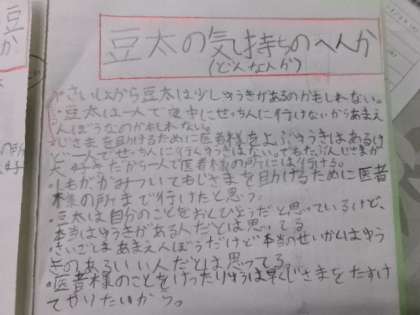 豆太の気持ちのへんか
(どんな人か)
・さいしょから豆太は少しゆうきがあるのかもしれない。
・豆太は一人で夜中にせっちんに行けないからあまえ
んぼうなのかもしれない。
じさまを助けるために医者様をよぶゆうきはあるけど
一人でせっちんに行くゆうきはない。
だから一人で医者様の所には行ける。
かみついてもじさまを助けるために医者
様の所まで行けたと思う。
・豆太は自分のことをおくびょうだと思っているけど、
本当はゆうきがある人だとは思ってる
・さいごはあまえんぼうだけど本当のせいかくはゆう
きのあるいい人だとは思ってる。
・医者様のことをけったりゆうは早くじさまをたすけ
てやりたいから。